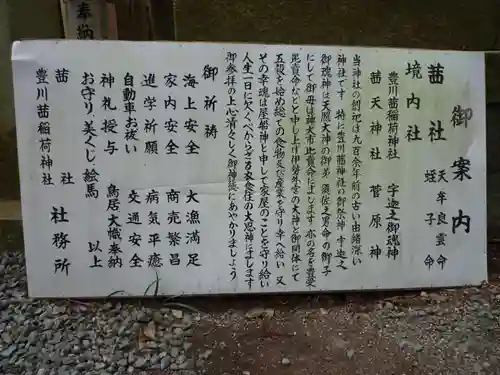 奉納
御案内
茜社 天牟良雲命
蛭子命
境内社
豊川茜稲荷神社 宇迦之御魂神
茜天神社 菅原神
当神社の創祀は九百余年前の古い由緒深い
神社です 特に豊川茜神社の御祭神 宇迦之
御魂神は天照大神の御弟 須佐之男命の御子
にして御母は神大市比賣命にまします 亦の名を豊受
毘賣命などと申し上げ伊勢外宮の大神と御同体にて
五穀を始め総ての食物及び産業を守り幸へ給い 又
その幸魂は屋船神と申して家屋のことを守り給い
人生一日に欠くべからざる衣食住の大恩神にまします
御参拝の上心清々しく御神徳にあやかりましょう
御祈祷
海上安全 大漁満足
家内安全 商売繁昌
進学祈願 病気平癒
自動車お祓い 交通安全
神札授与 鳥居大幟奉納
お守り、美くじ、絵馬 以上
茜社
豊川茜稲荷神社 社務所